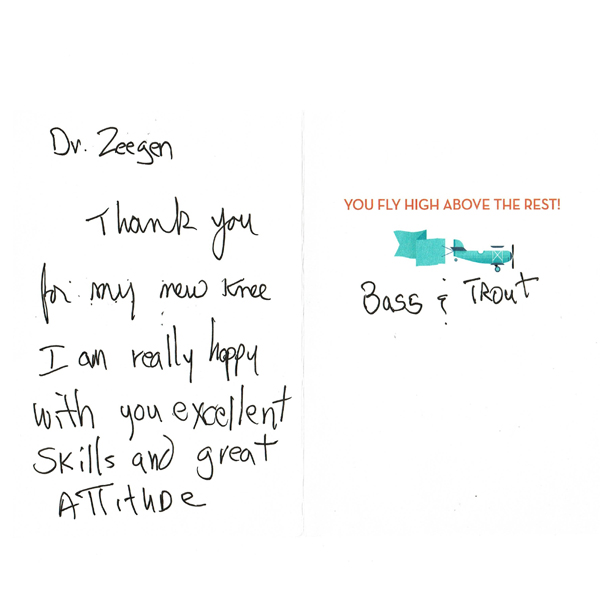 Dr. Zeegen
Thank you
for my new knee
I am really happy
with you excellent
skills and great
ATTitUDe
YOU FLY HIGH ABOVE THE REST!
Bass & TRouT